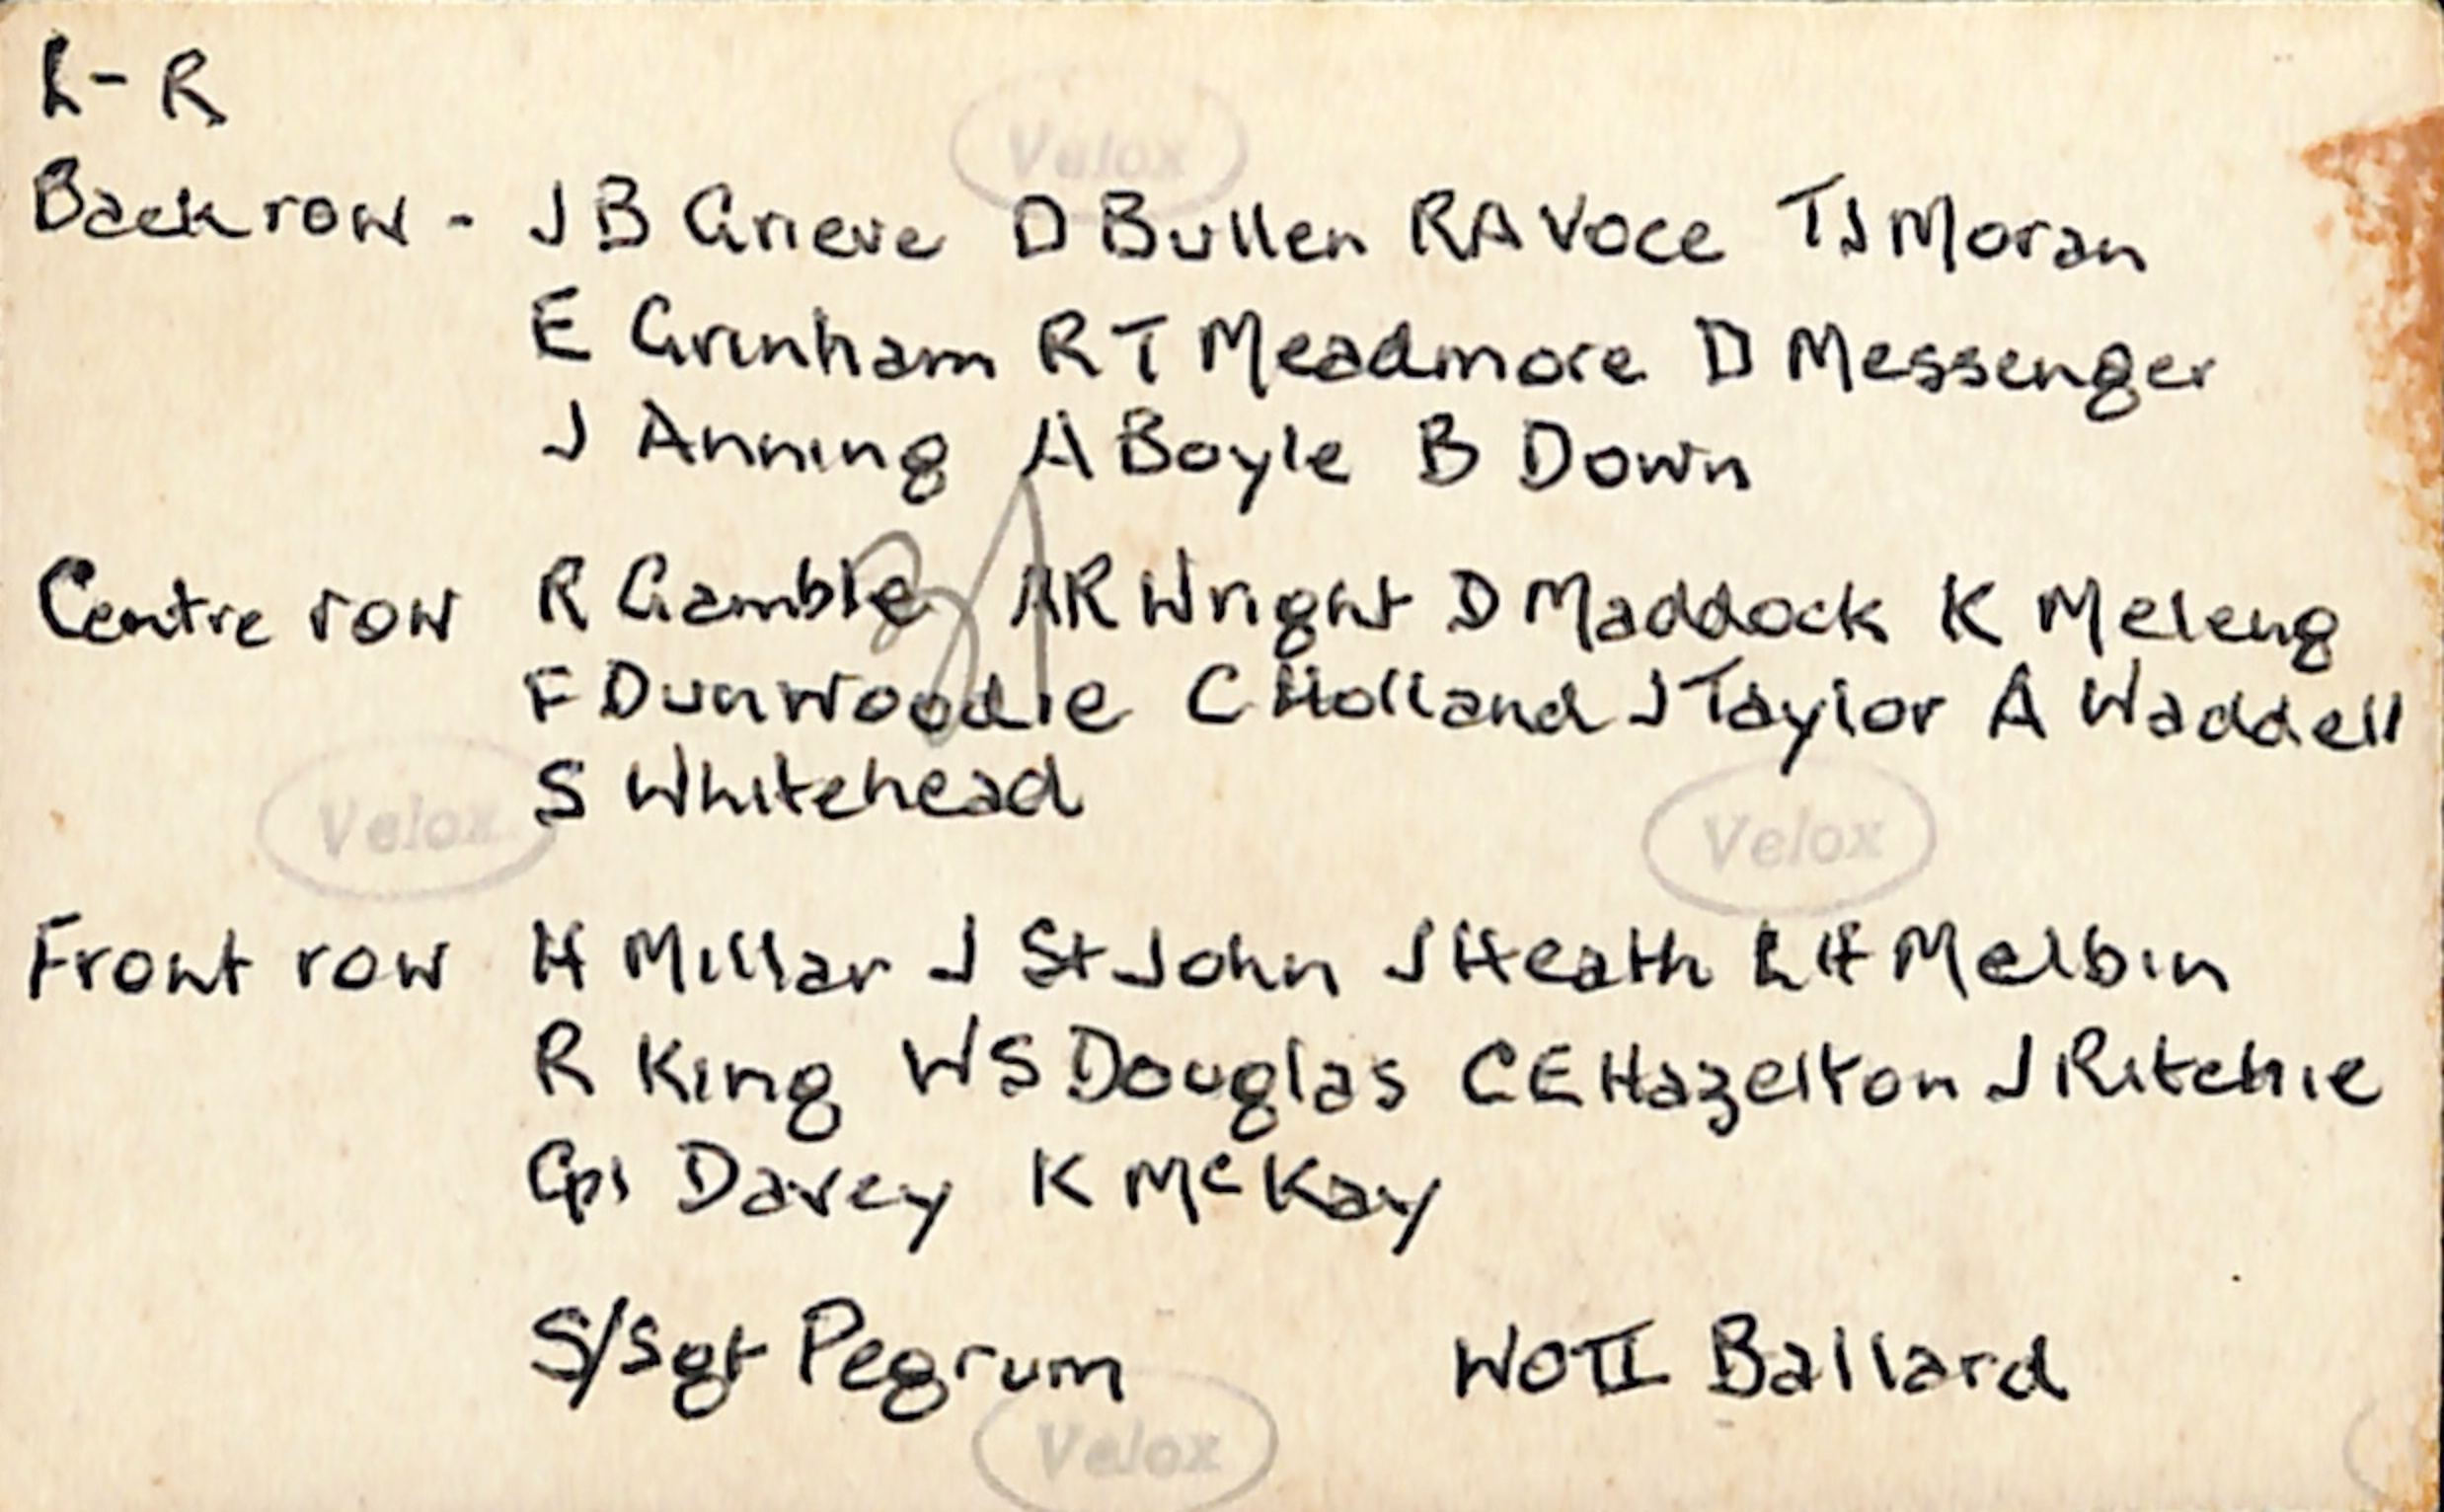 L-R
Velox
Back row - J B Grieve D Bullen RA Voce TJ Moran
E Grinham R T Meadmore D Messenger
J Anning A Boyle B Down
Centre row R Gamble AR Wright D Maddock K Meleng
F Dunwoodie C Holland J Taylor A Waddell
S Whitehead
Velox Velox
Front row H Millar J St John J Heath L H Melbin
R King WS Douglas CE Hazelton J Ritchie
Cpl Davey K McKay
S/Sgt Pegrum WOII Ballard
Velox